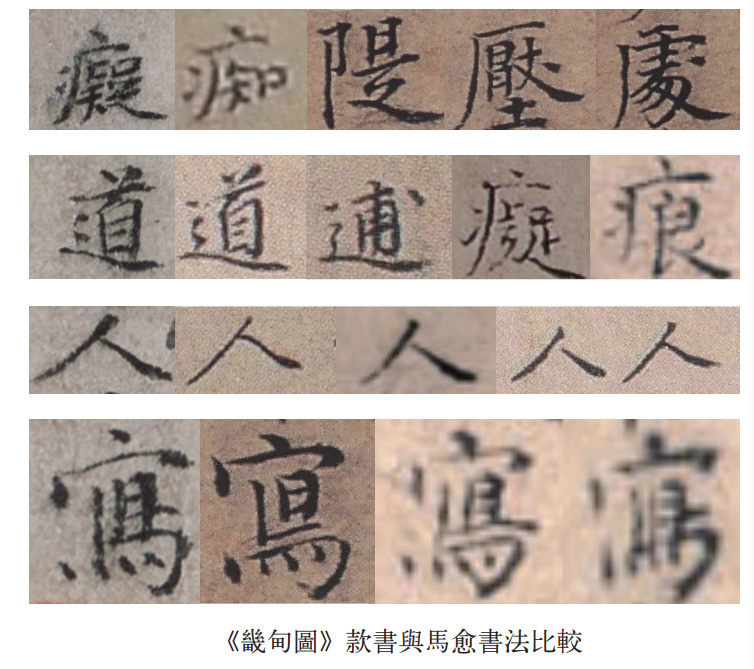 癡痴隄壓處
道道逋癡痕
人人人人人
寫寫寫寫
《畿甸圖》款書與馬愈書法比較